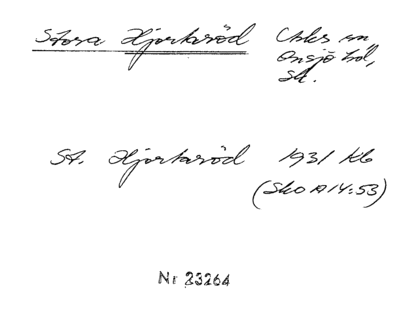 Stora Hjortaröd
Onsjö hd,
Sk.
St. Hjortaröd 1931 Kb
(Sko A14:53)
Nr 23264